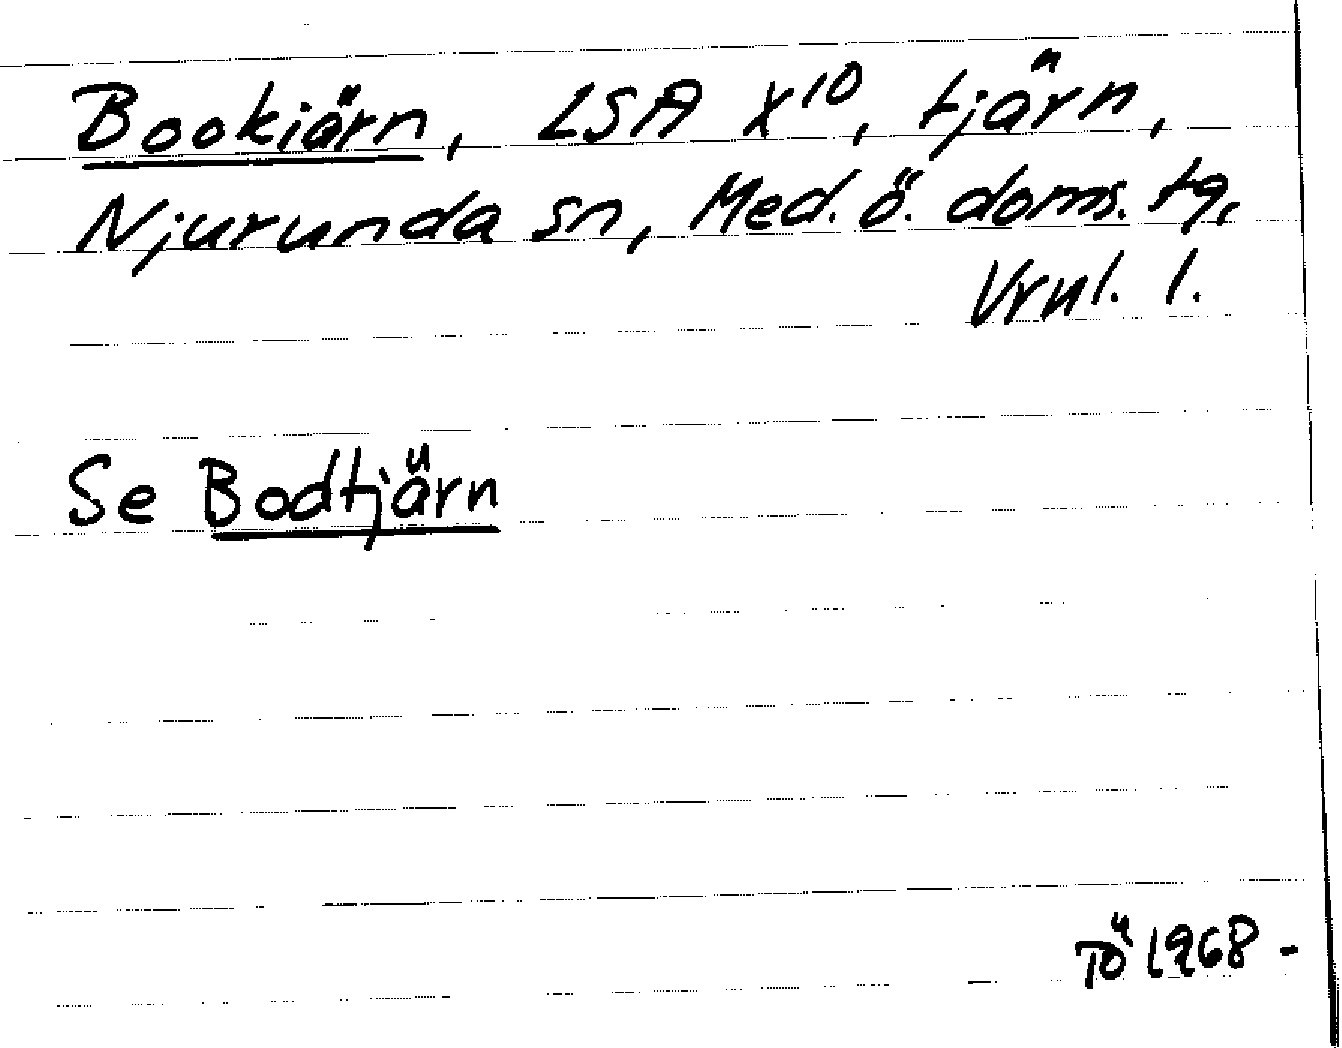 Bookiärn, LSA X¹⁰, tjärn,
Njurunda sn, Med. ö. doms. tg,
Vrnl. l.
Se Bodtjärn
TÖ 1968 -